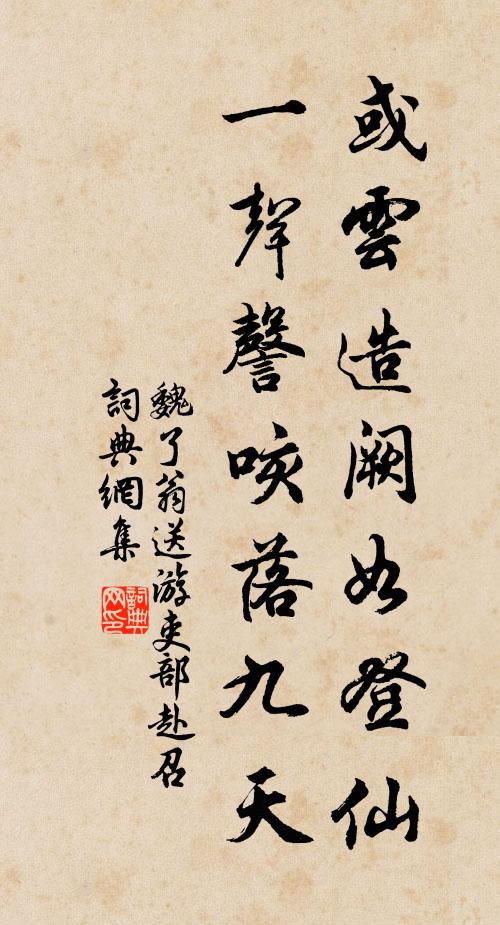 或雲造闕如登仙
一聲謦咳落九天
魏了翁送游吏部赴召
詞典網集
詞典網印